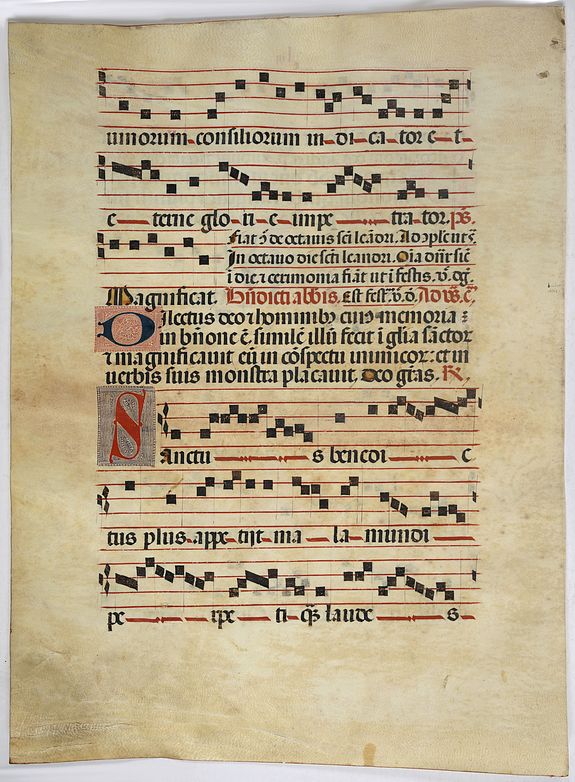 uinorum consiliorum in di ca tor e t
e terne glo ri e impe tra tor. ps.
Fiat de octauis sci leādri. Ad
In octauo die sci leandri. Oīa
i die. ꝛ cerimonia fiāt ut i festis. v. dꝫ.
Magnificat. Bn̄dicti abbis. Est fest. v. d. Ad vs. c̄.
Dilectus deo ꝛ hominibꝫ cuiꝰ memoria :
in bn̄one ē. similē illū fecit ī glīa sāctoꝝ
ꝛ magnificauit eū in cōspectu inimicoꝝ: et in
uerbis suis monstra placauit. Deo grās. ℟.
Sanctu s benedi c
tus plus appe tijt ma la mundi
pe rpe ti qꝫ laude s